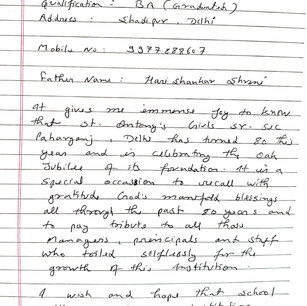 Qualification : BA (Graduated)
Address : Shadipur, Delhi
Mobile No : 9977882607
Father Name : Hari Shankar
It gives me immense joy to know
that St. Antony's Girls Sr. Sec
Paharganj, Delhi has turned 80 this
year and is celebrating the Oak
Jubilee of its foundation. It is a
special occassion to recall with
gratitude God's manifold blessings
all through the past 80 years and
to pay tribute to all those
Managers, principals and staff
who toiled selflessly for the
growth of this Institution.
I wish and hope that school